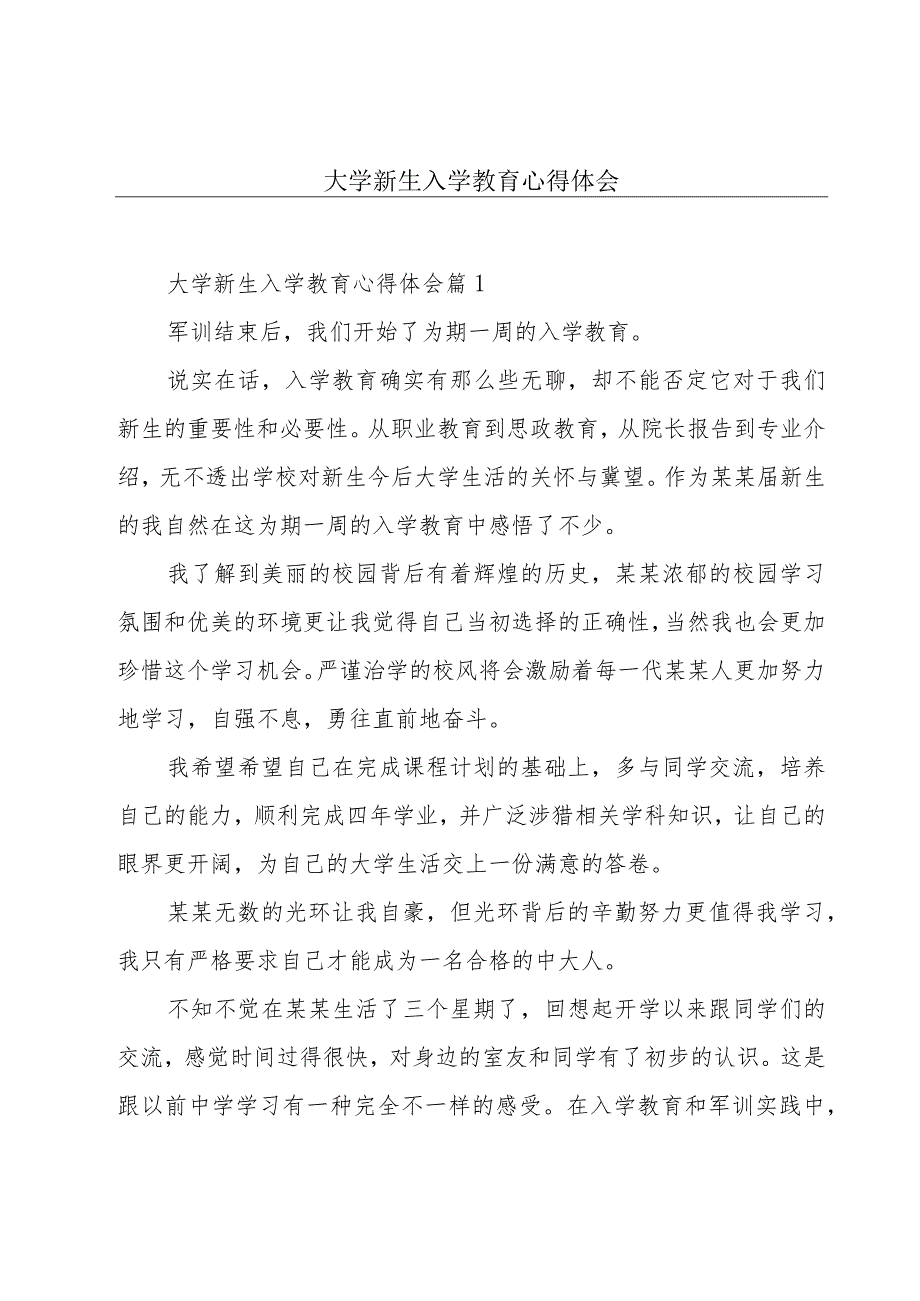 大学新生入学教育心得体会
大学新生入学教育心得体会篇1
军训结束后，我们开始了为期一周的入学教育。
说实在话，入学教育确实有那么些无聊，却不能否定它对于我们
新生的重要性和必要性。从职业教育到思政教育，从院长报告到专业介
绍，无不透出学校对新生今后大学生活的关怀与冀望。作为某某届新生
的我自然在这为期一周的入学教育中感悟了不少。
我了解到美丽的校园背后有着辉煌的历史，某某浓郁的校园学习
氛围和优美的环境更让我觉得自己当初选择的正确性，当然我也会更加
珍惜这个学习机会。严谨治学的校风将会激励着每一代某某人更加努力
地学习，自强不息，勇往直前地奋斗。
我希望希望自己在完成课程计划的基础上，多与同学交流，培养
自己的能力，顺利完成四年学业，并广泛涉猎相关学科知识，让自己的
眼界更开阔，为自己的大学生活交上一份满意的答卷。
某某无数的光环让我自豪，但光环背后的辛勤努力更值得我学习，
我只有严格要求自己才能成为一名合格的中大人。
不知不觉在某某生活了三个星期了，回想起开学以来跟同学们的
交流，感觉时间过得很快，对身边的室友和同学有了初步的认识。这是
跟以前中学学习有一种完全不一样的感受。在入学教育和军训实践中，